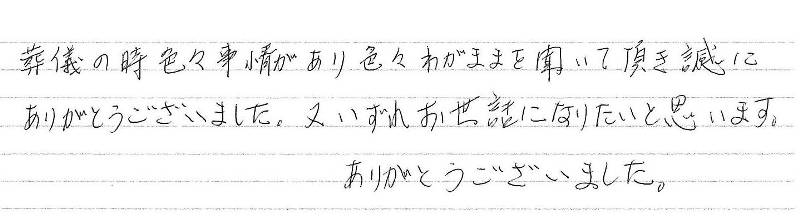 葬儀の時色々事情があり色々わがままを聞いて頂き誠に
ありがとうございました。又いずれお世話になりたいと思います。
ありがとうございました。